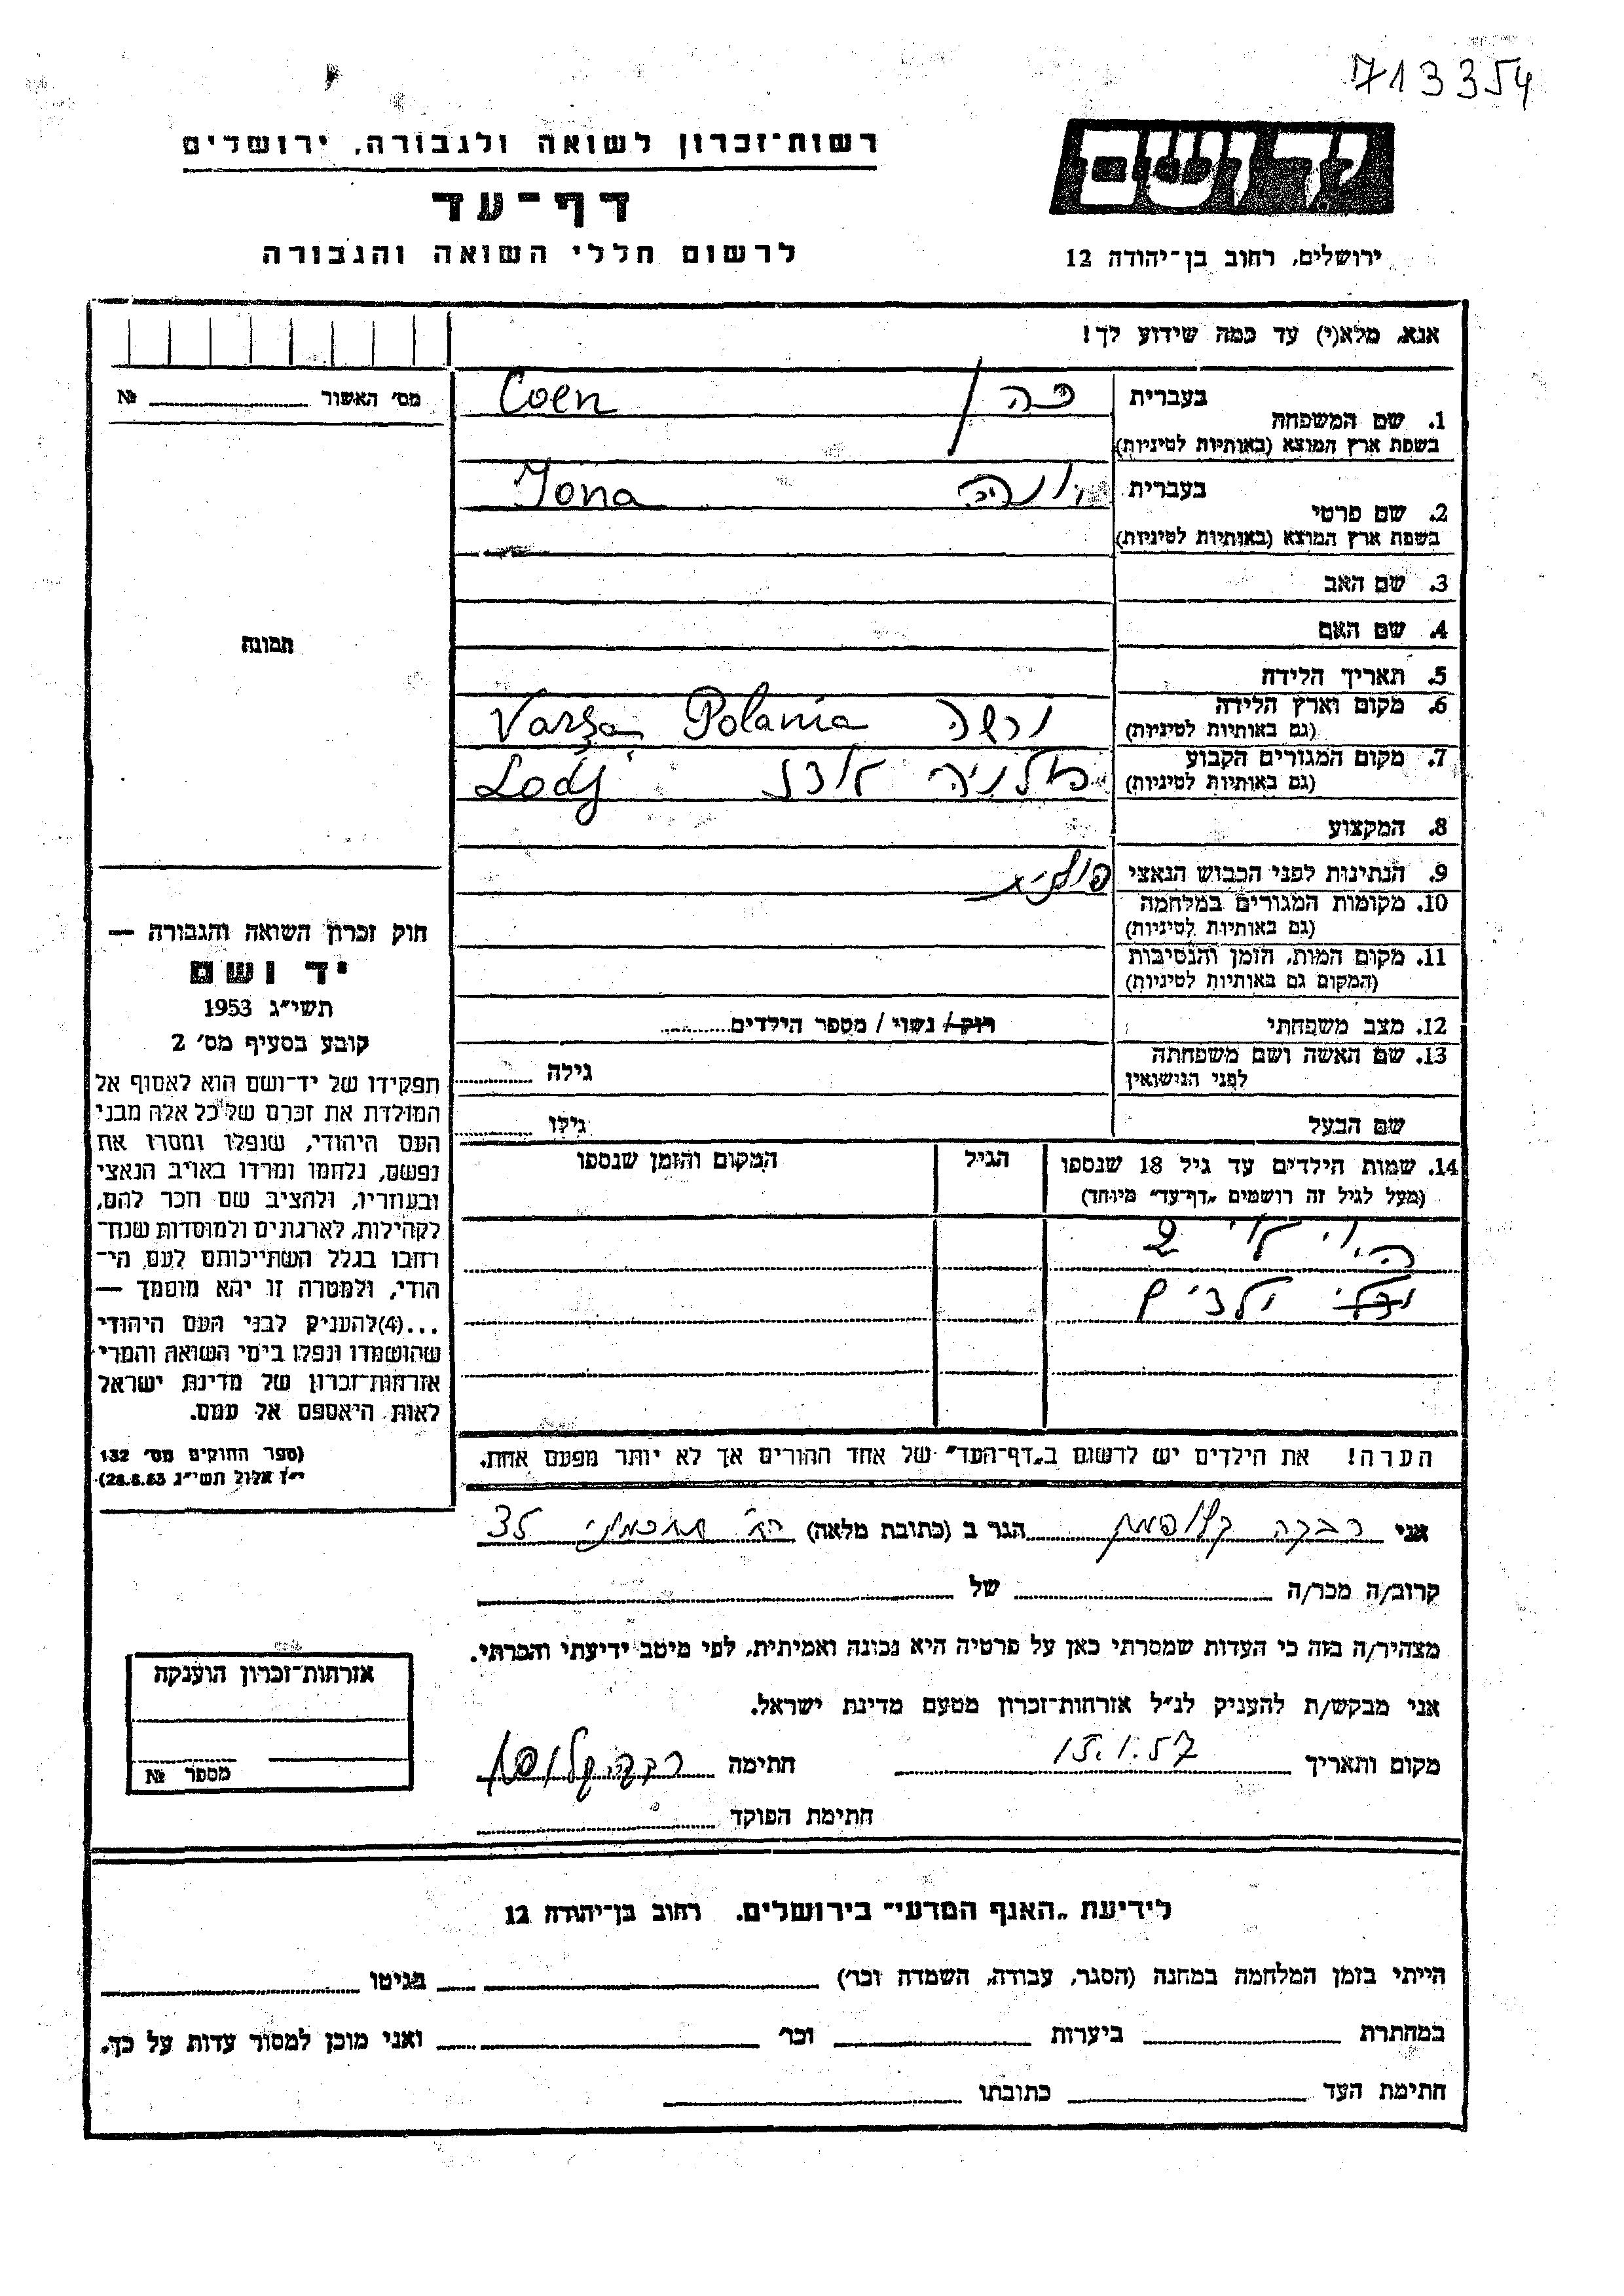 713354
רשות־זכרון לשואה ולגבורה, ירושלים
דף־עד
לרשום חללי השואה והגבורה
ידושם
ירושלים, רחוב בן־יהודה 12
אנא, מלא(י) עד כמה שידוע לך!
מס׳ האשור № 
1. שם המשפחה בעברית כהן Coen
בשפת ארץ המוצא (באותיות לטיניות)
2. שם פרטי בעברית יונה Jona
בשפת ארץ המוצא (באותיות לטיניות)
3. שם האב
4. שם האם
תמונה
5. תאריך הלידה
6. מקום וארץ הלידה ורשה Polania Varşa
(גם באותיות לטיניות)
7. מקום המגורים הקבוע פולניה לודז Lodj
(גם באותיות לטיניות)
8. המקצוע
9. הנתינות לפני הכבוש הנאצי
10. מקומות המגורים במלחמה
(גם באותיות לטיניות)
11. מקום המות, הזמן והנסיבות
(המקום גם באותיות לטיניות)
12. מצב משפחתי רוק / נשוי / מספר הילדים
13. שם האשה ושם משפחתה גילה
לפני הנישואין
שם הבעל גילו
14. שמות הילדים עד גיל 18 שנספו הגיל המקום והזמן שנספו
(מעל לגיל זה רושמים „דף־עד״ מיוחד)
היו לו 2
ילדים
הערה! את הילדים יש לרשום ב„דף־העד״ של אחד ההורים אך לא יותר מפעם אחת.
חוק זכרון השואה והגבורה —
יד ושם
תשי״ג 1953
קובע בסעיף מס׳ 2
תפקידו של יד־ושם הוא לאסוף אל
המולדת את זכרם של כל אלה מבני
העם היהודי, שנפלו ומסרו את
נפשם, נלחמו ומרדו באויב הנאצי
ובעוזריו, ולהציב שם וזכר להם,
לקהילות, לארגונים ולמוסדות שנח־
רחבו בגלל השתייכותם לעם הי־
הודי, ולמטרה זו יהא מוסמך —
...(4)להעניק לבני העם היהודי
שהושמדו ונפלו בימי השואה והמרי
אזרחות־זכרון של מדינת ישראל
לאות היאספם אל עמם.
(ספר החוקים מס׳ 132
י״ז אלול תשי״ג 28.8.53)
אני רבקה קלופמן הגר ב (כתובת מלאה) 35
קרוב/ה מכר/ה של
מצהיר/ה בזה כי העדות שמסרתי כאן על פרטיה היא נכונה ואמיתית, לפי מיטב ידיעתי והכרתי.
אני מבקש/ת להעניק לנ״ל אזרחות־זכרון מטעם מדינת ישראל.
מקום ותאריך 15.1.57 חתימה רבקה קלופמן
חתימת הפוקד
אזרחות־זכרון הוענקה
מספר №
לידיעת „האגף המדעי״ בירושלים, רחוב בן־יהודה 12
הייתי בזמן המלחמה במחנה (הסגר, עבודה, השמדה וכו׳) בגיטו
במחתרת ביערות וכו׳ ואני מוכן למסור עדות על כך.
חתימת העד כתובתו